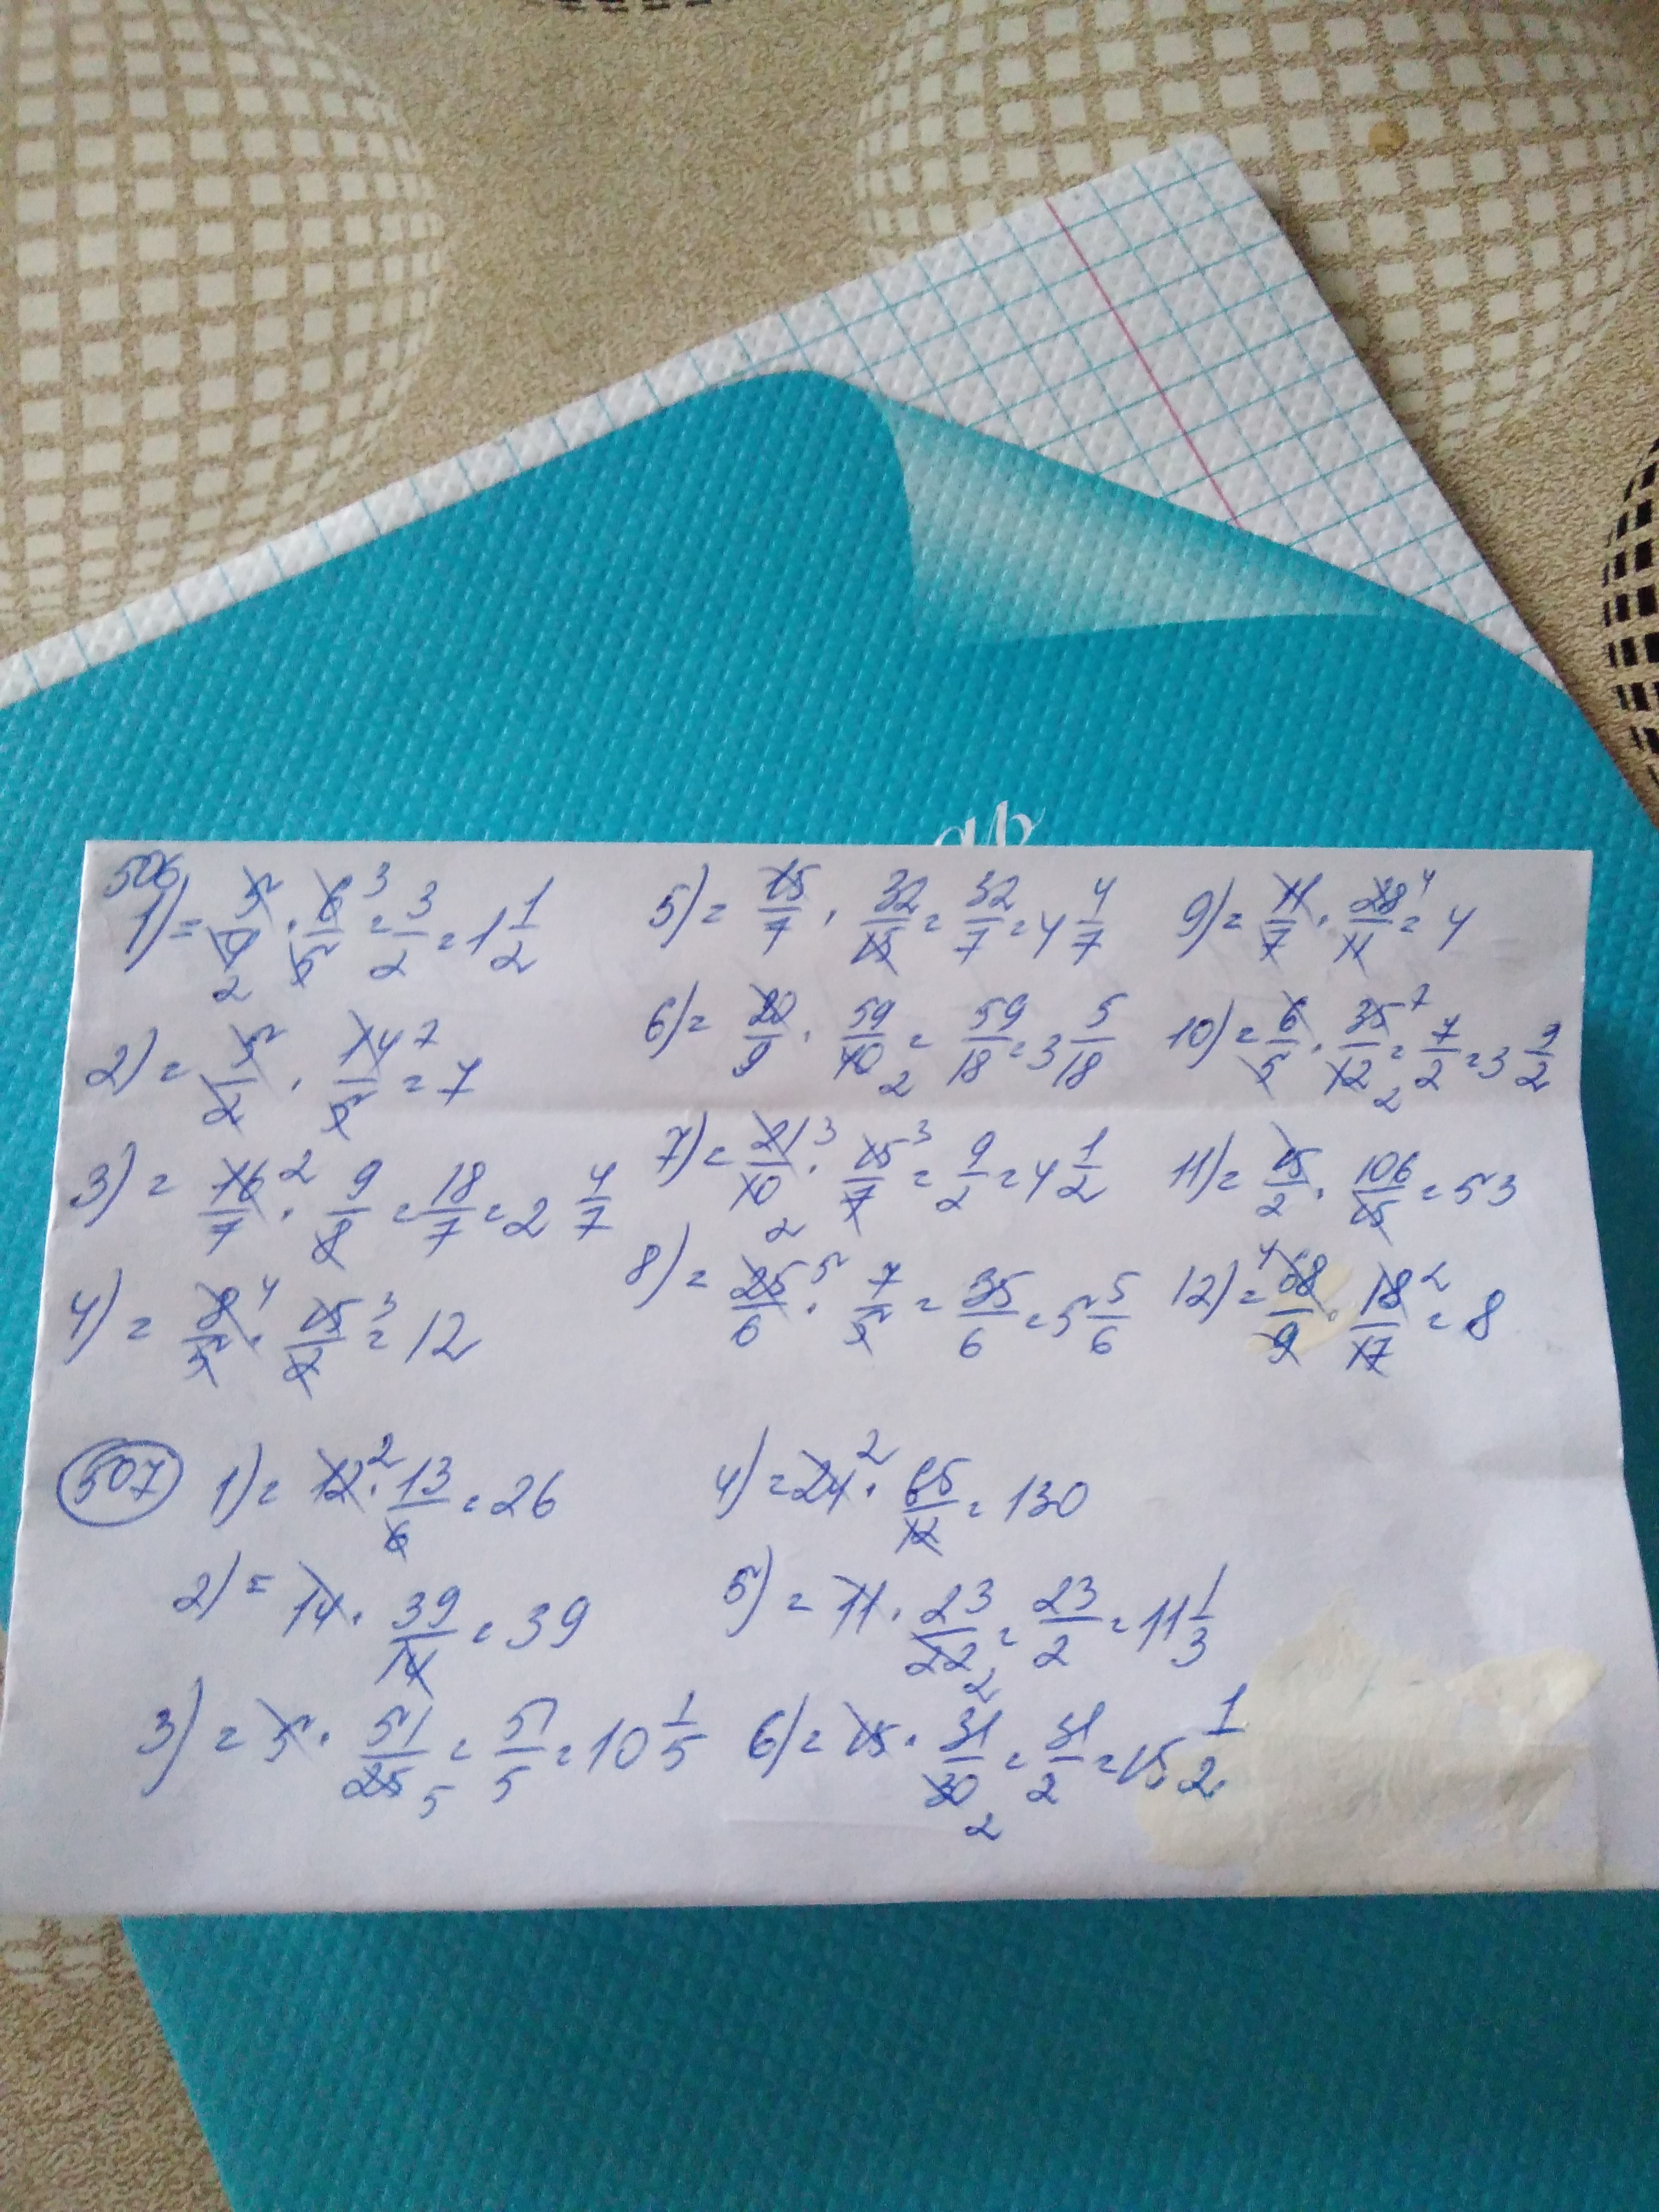 ab
506
1) = 5/4 · 6/5 = 3/2 = 1 1/2
2) = 5/2 · 14/5 = 7
3) = 16/7 · 9/8 = 18/7 = 2 4/7
4) = 8/5 · 15/2 = 12
5) = 15/7 · 32/15 = 32/7 = 4 4/7
6) = 20/9 · 59/40 = 59/18 = 3 5/18
7) = 21/10 · 15/7 = 9/2 = 4 1/2
8) = 25/6 · 7/5 = 35/6 = 5 5/6
9) = 11/7 · 28/11 = 4
10) = 6/5 · 35/12 = 7/2 = 3 1/2
11) = 15/2 · 106/15 = 53
12) = 68/9 · 18/17 = 8
507
1) = 12 · 13/6 = 26
2) = 14 · 39/14 = 39
3) = 5 · 51/25 = 51/5 = 10 1/5
4) = 24 · 65/12 = 130
5) = 11 · 23/22 = 23/2 = 11 1/3
6) = 15 · 31/30 = 31/2 = 15 1/2